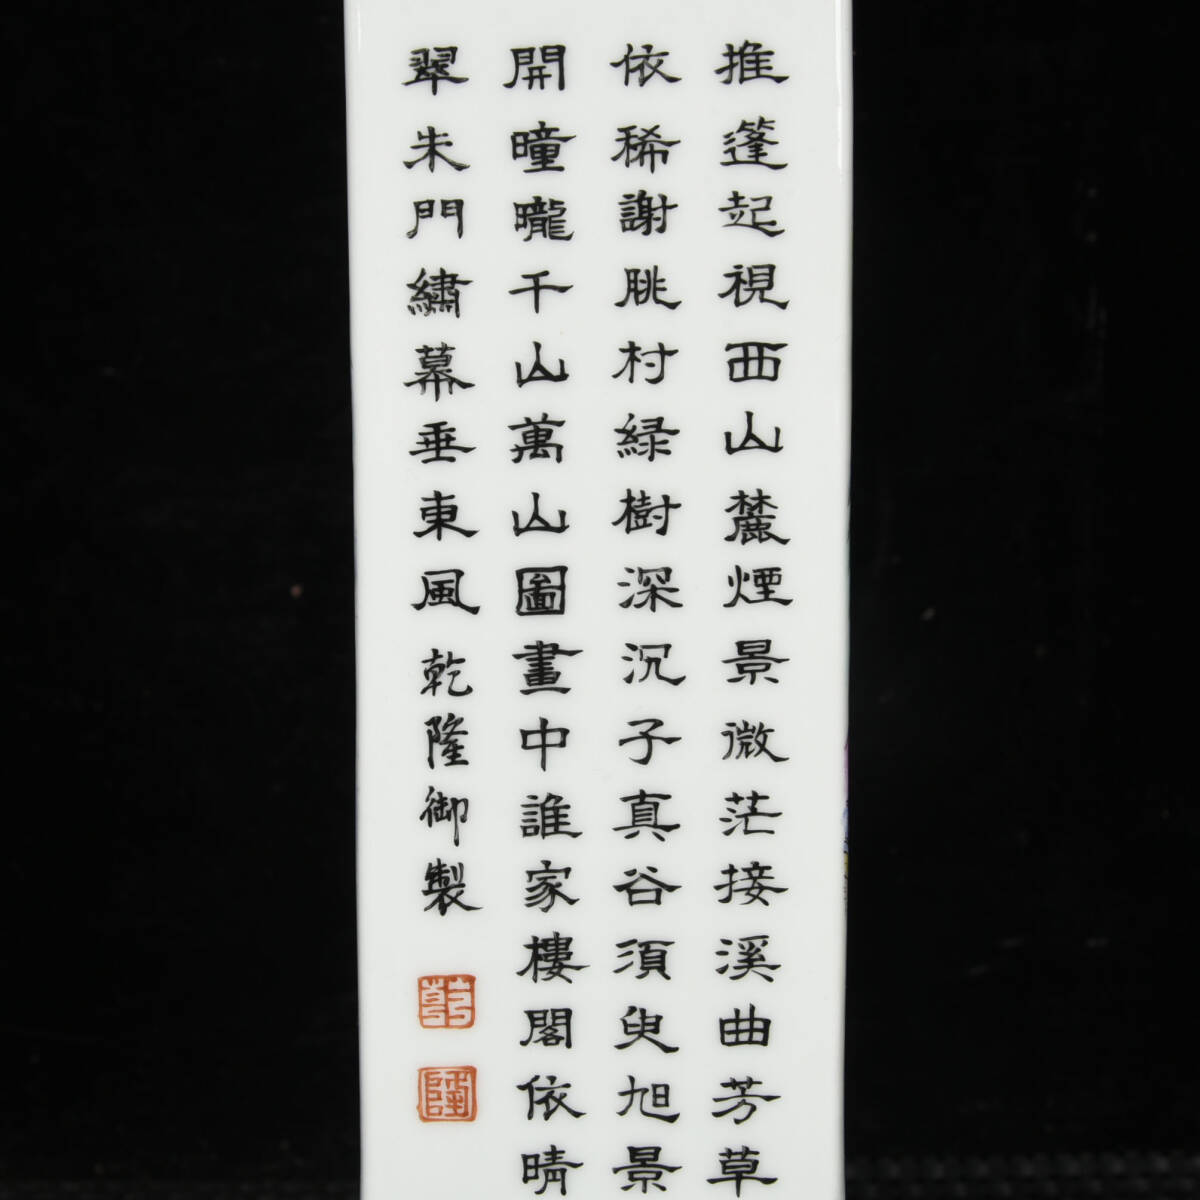 推蓬起視西山麓煙景微茫接溪曲芳草
依稀謝朓村緑樹深沉子真谷須臾旭景
開曈曨千山萬山圖畫中誰家樓閣依晴
翠朱門繡幕垂東風乾隆御製
乾
隆